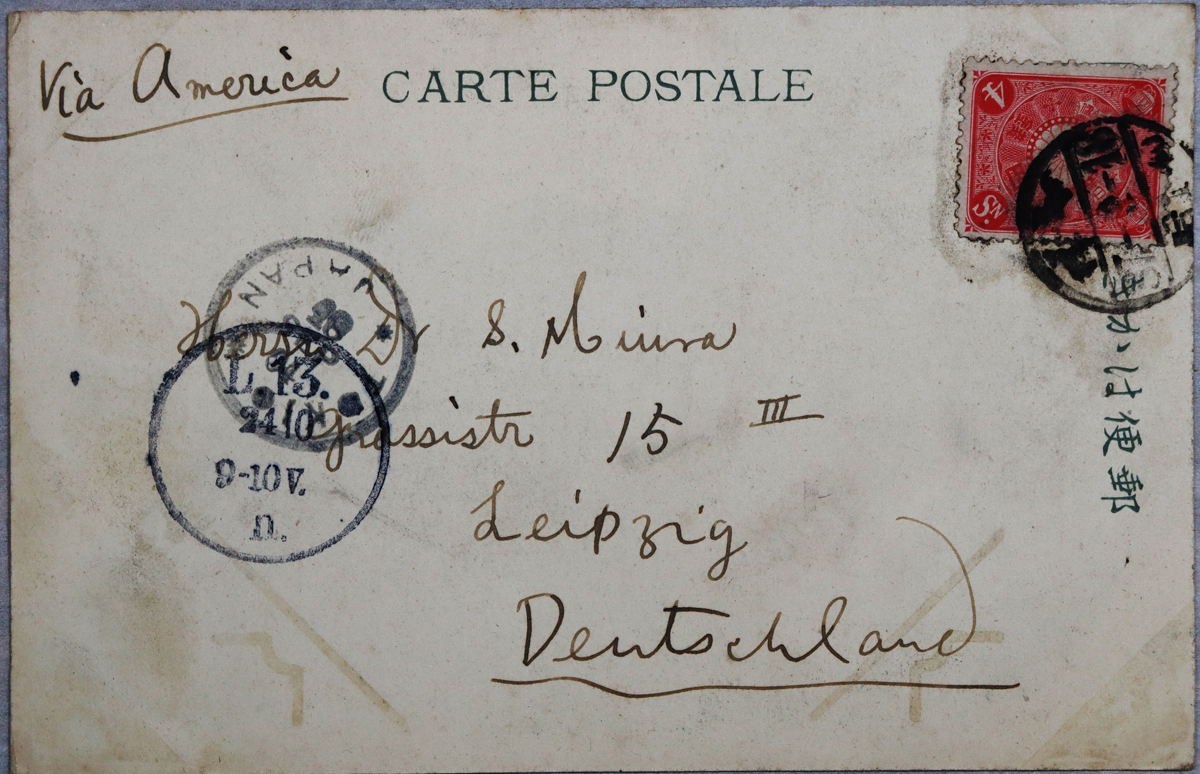 Via America
CARTE POSTALE
4
SN
JAPAN
Herrn Dr S. Miura
L 13.
24/10
9-10V.
n.
Grassistr 15 III
Leipzig
Deutschland
郵便はか